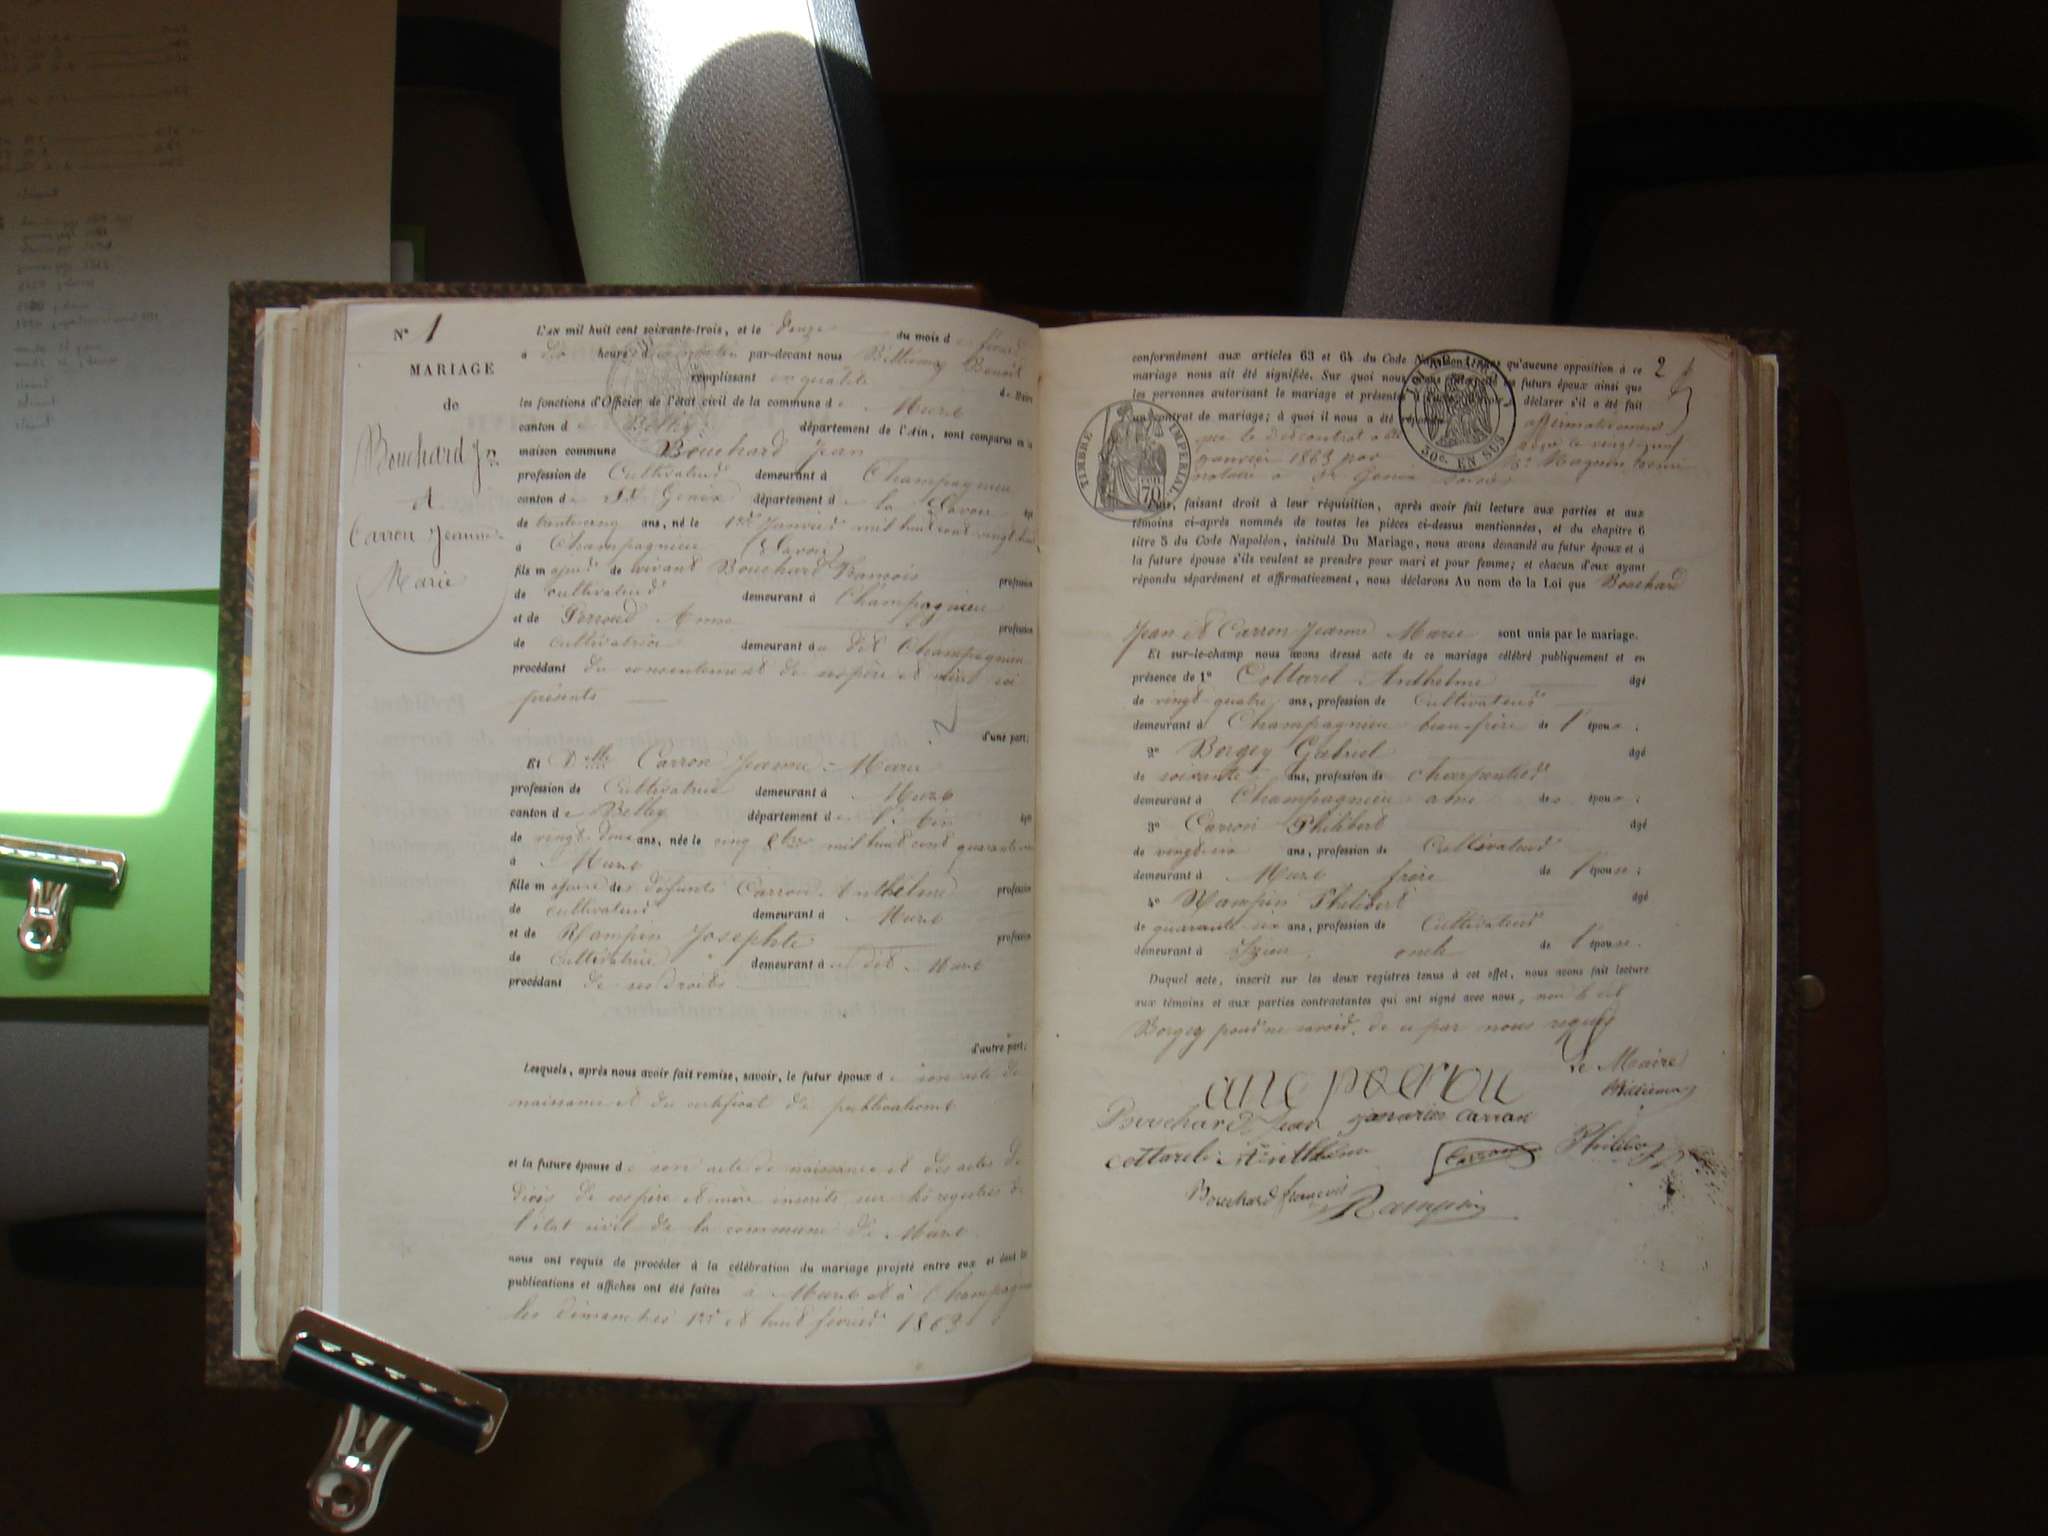 N° 1
MARIAGE
de
Bouchard Jn
et
Carron Jeanne
Marie
L'AN mil huit cent soixante-trois, et le douze du mois de février
à dix heures du matin par-devant nous Billiemaz Benoit
remplissant en qualité de Maire
les fonctions d'Officier de l'état civil de la commune de Murs
canton de Belley département de l'Ain, sont comparus en la
maison commune Bouchard Jean
profession de Cultivateur demeurant à Champagnieu
canton de St Genix département de la Savoie âgé
de trente cinq ans, né le 1er Janvier mil huit cent vingt
à Champagnieu (Savoie)
fils majeur de vivant Bouchard François profession
de cultivateur demeurant à Champagnieu
et de Perroud Anne profession
de cultivatrice demeurant au dit Champagnieu
procédant du consentement de ses père et mère ici
présents
d'une part;
Et Delle Carron Jeanne-Marie
profession de Cultivatrice demeurant à Murs
canton de Belley département de l'Ain âgée
de vingt-deux ans, née le cinq 8bre mil huit cent quarante
à Murs
fille majeure des défunts Carron Anthelme profession
de cultivateur demeurant à Murs
et de Rampin Josephte profession
de cultivatrice demeurant au dit Murs
procédant de ses droits
d'autre part;
Lesquels, après nous avoir fait remise, savoir, le futur époux de son acte de
naissance et du certificat de publications
et la future épouse de son acte de naissance et des actes de
décès de ses père et mère inscrits sur les registres de
l'état civil de la commune de Murs
nous ont requis de procéder à la célébration du mariage projeté entre eux et dont les
publications et affiches ont été faites à Murs et à Champagnieu
les dimanches 1er et huit février 1863
2
conformément aux articles 63 et 64 du Code Napoléon, sans qu'aucune opposition à ce
mariage nous ait été signifiée. Sur quoi nous avons interpellé les futurs époux ainsi que
les personnes autorisant le mariage et présentes à déclarer s'il a été fait
un contrat de mariage; à quoi il nous a été répondu affirmativement
que le dit contrat a été reçu le vingt neuf
janvier 1863 par Me Magnin
notaire à St Genix Savoie
TIMBRE IMPÉRIAL
70
50c. EN SUS
Puis, faisant droit à leur réquisition, après avoir fait lecture aux parties et aux
témoins ci-après nommés de toutes les pièces ci-dessus mentionnées, et du chapitre 6
titre 5 du Code Napoléon, intitulé Du Mariage, nous avons demandé au futur époux et à
la future épouse s'ils veulent se prendre pour mari et pour femme; et chacun d'eux ayant
répondu séparément et affirmativement, nous déclarons Au nom de la Loi que Bouchard
Jean et Carron Jeanne Marie sont unis par le mariage.
Et sur-le-champ nous avons dressé acte de ce mariage célébré publiquement et en
présence de 1° Cottarel Anthelme âgé
de vingt-quatre ans, profession de Cultivateur
demeurant à Champagnieu beau-frère de l'épouse;
2° Borgey Gabriel âgé
de soixante ans, profession de charpentier
demeurant à Champagnieu ami des époux;
3° Carron Philibert âgé
de vingt-six ans, profession de Cultivateur
demeurant à Murs frère de l'épouse;
4° Rampin Philibert âgé
de quarante six ans, profession de Cultivateur
demeurant à Izieu oncle de l'épouse.
Duquel acte, inscrit sur les deux registres tenus à cet effet, nous avons fait lecture
aux témoins et aux parties contractantes qui ont signé avec nous, non le dit
Borgey pour ne savoir, de ce par nous requis
Le Maire
Billiemaz
ane perrou
Bouchard Jean janmarie carron
cottarel Anthelme Carron Philibert
Bouchard françois Rampin